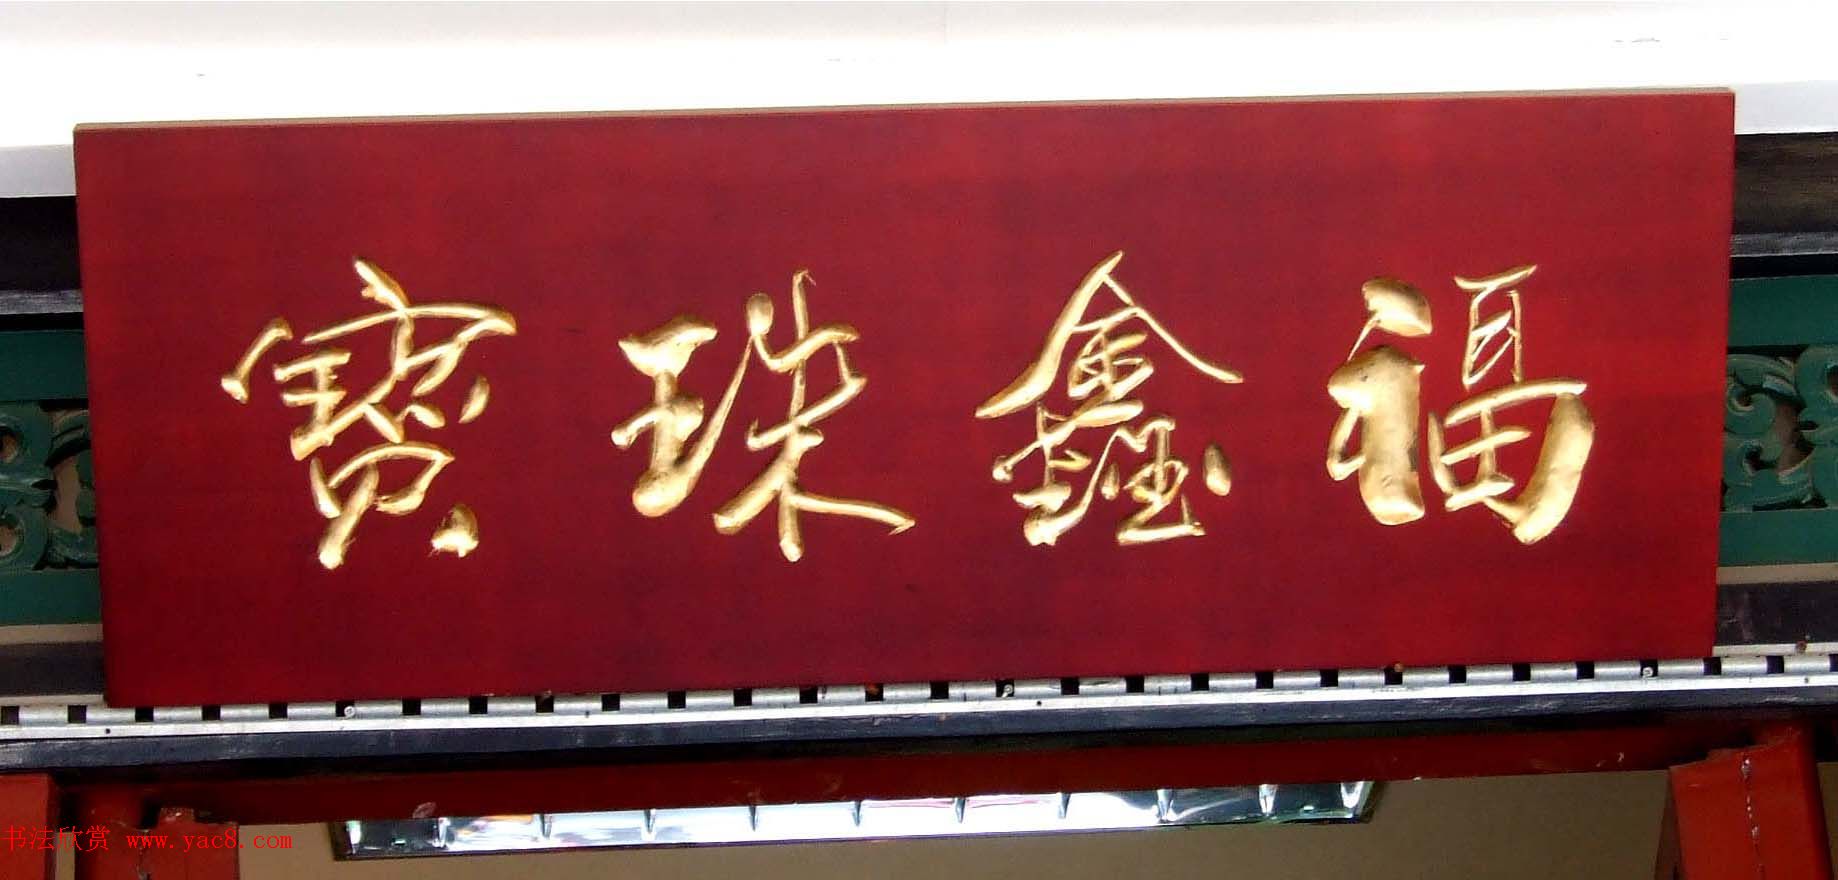 福鑫珠寶
书法欣赏 www.yac8.com